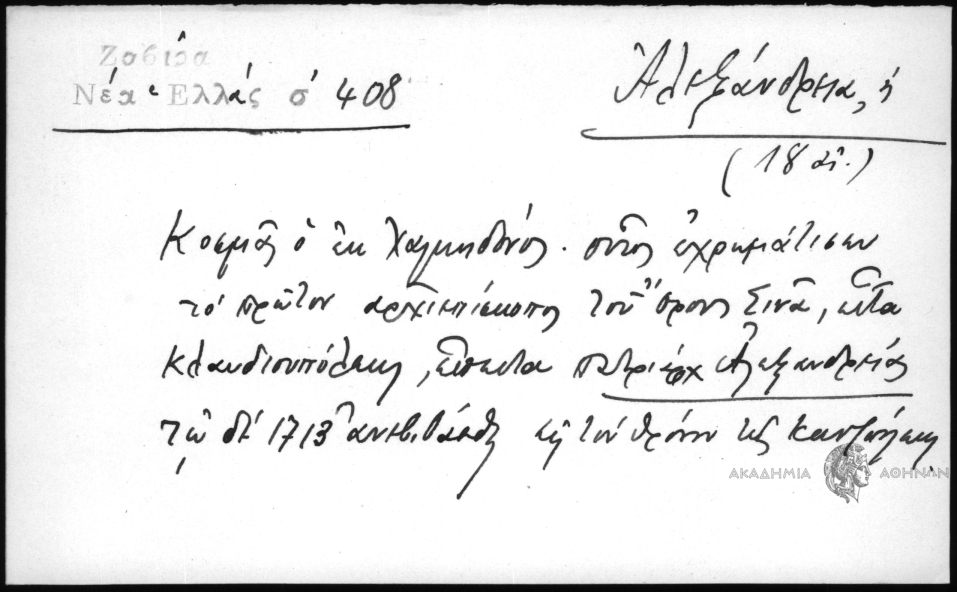 Ζαβίρα
Νέα Ἑλλάς σ 408
Ἀλεξάνδρεια, ἡ
(18 αἰ.)
Κοσμᾶς ὁ ἐκ Χαλκηδόνος. οὗτος ἐχρημάτισεν
τὸ πρῶτον ἀρχιεπίσκοπος τοῦ ὄρους Σινᾶ, εἶτα
Κλαυδιουπόλεως, ἔπειτα πατριάρχ Ἀλεξανδρείας
τῷ δὲ 1713 ἀνεβιβάσθη εἰς τὸν θρόνον τῆς Κων)πόλεως
ΑΚΑΔΗΜΙΑ ΑΘΗΝΩΝ